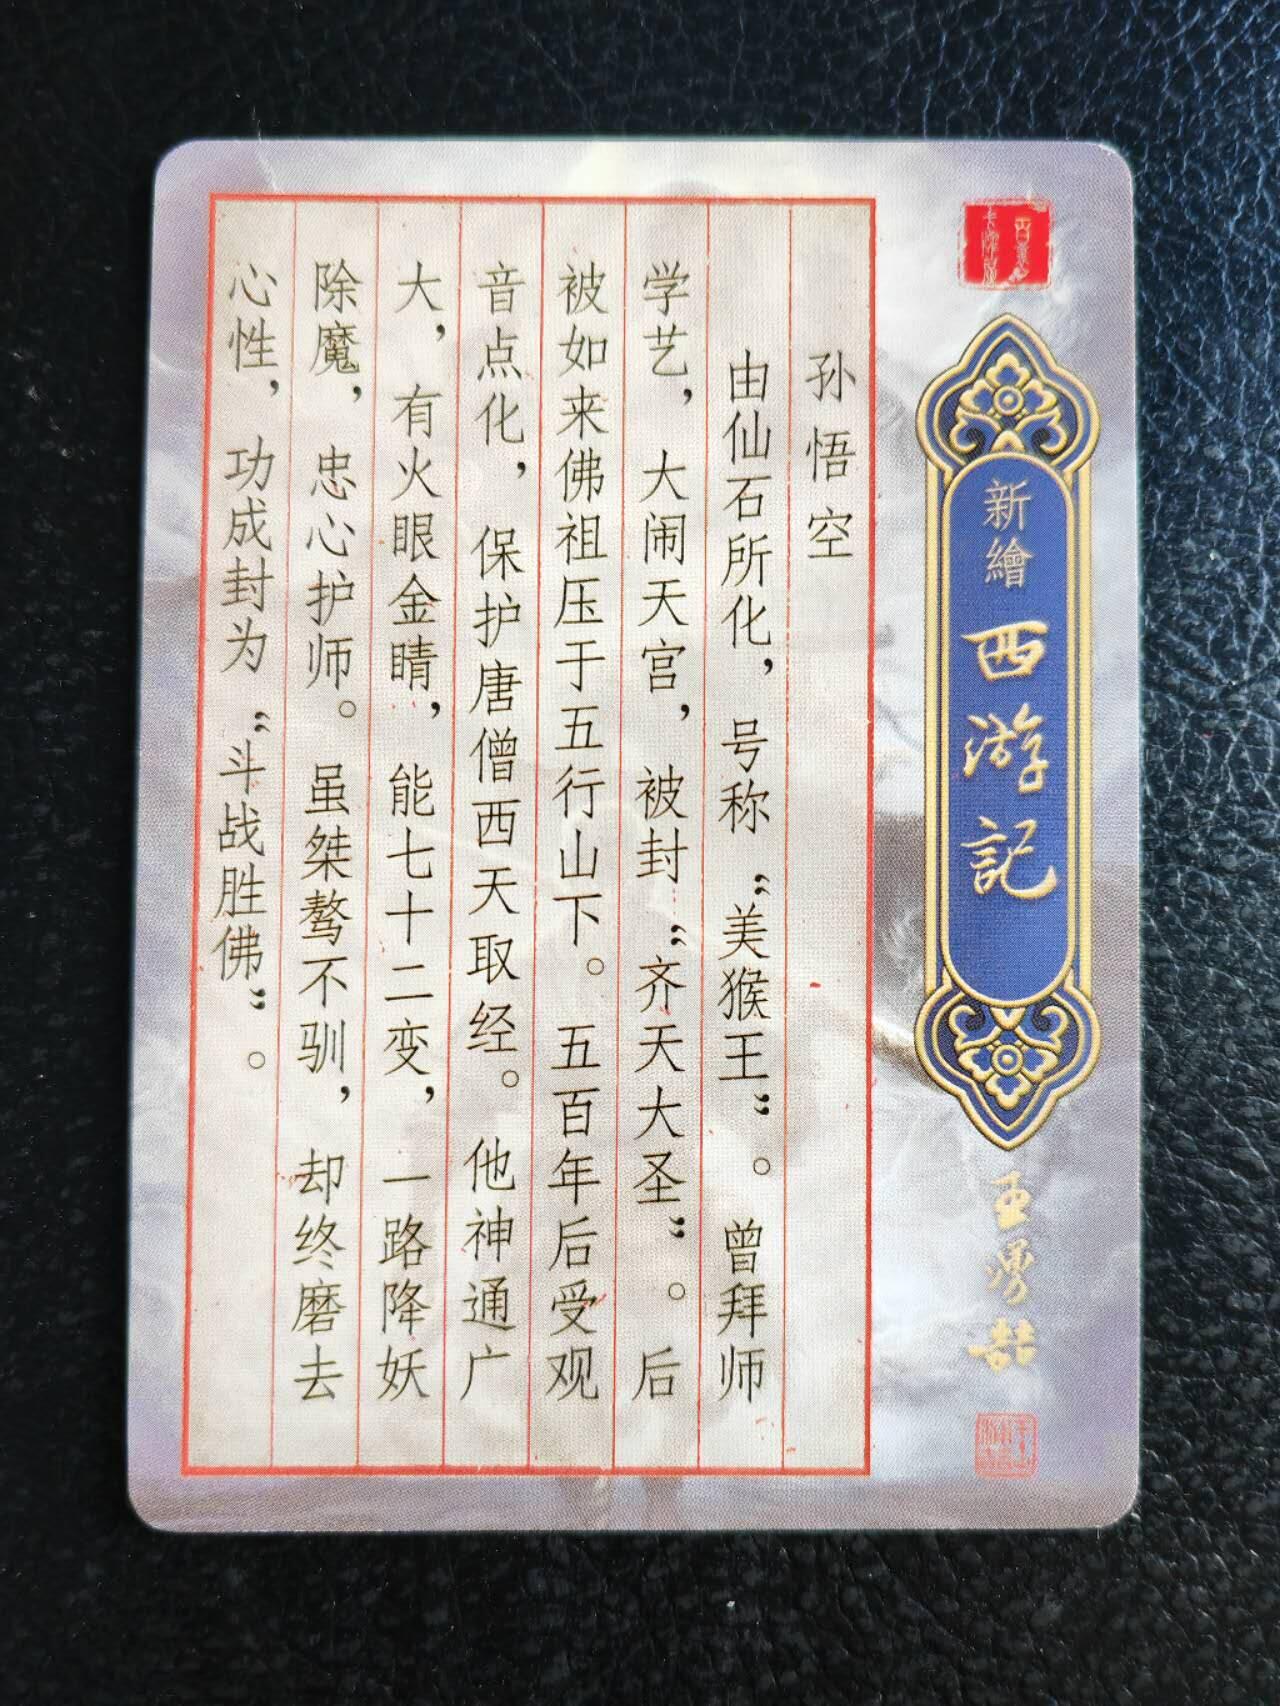 新繪西游記
孙悟空
由仙石所化，号称“美猴王”。曾拜师
学艺，大闹天宫，被封“齐天大圣”。后
被如来佛祖压于五行山下。五百年后受观
音点化，保护唐僧西天取经。他神通广
大，有火眼金睛，能七十二变，一路降妖
除魔，忠心护师。虽桀骜不驯，却终磨去
心性，功成封为“斗战胜佛”。